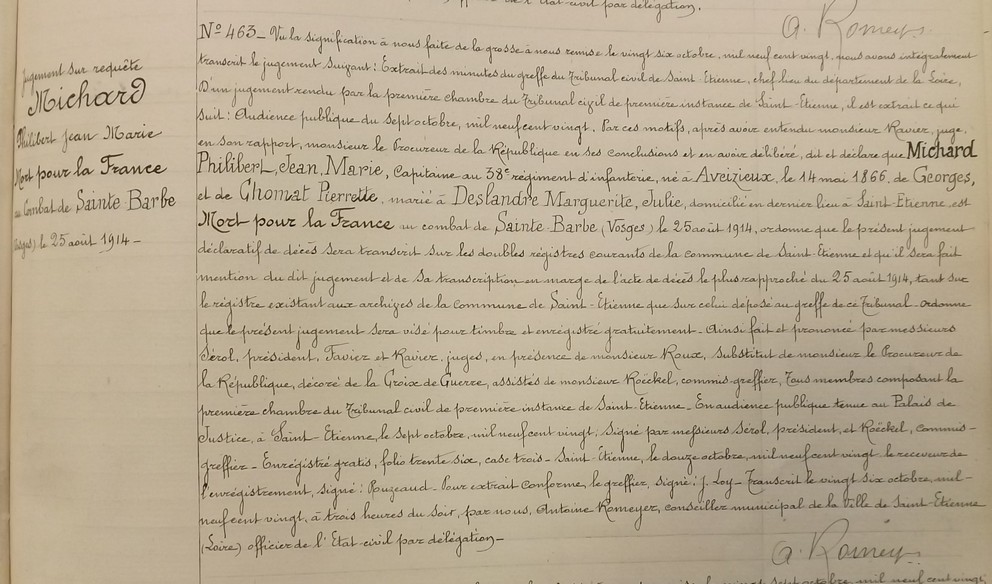 de l'Etat civil par délégation.
A. Romeyer
Jugement sur requête
Michard
Philibert Jean Marie
Mort pour la France
au Combat de Sainte Barbe
(Vosges) le 25 août 1914_
Nº 463_ Vu la signification à nous faite de la grosse à nous remise le vingt six octobre, mil neuf cent vingt, nous avons intégralement
transcrit le jugement suivant: Extrait des minutes du greffe du Tribunal civil de Saint-Etienne, chef lieu du département de la Loire,
D'un jugement rendu par la première chambre du Tribunal civil de première instance de Saint-Etienne, il est extrait ce qui
suit: Audience publique du sept octobre, mil neuf cent vingt. Par ces motifs, après avoir entendu monsieur Ravier, juge,
en son rapport, monsieur le Procureur de la République en ses conclusions et en avoir délibéré, dit et déclare que Michard
Philibert, Jean, Marie, Capitaine au 38e régiment d'infanterie, né à Aveizieux, le 14 mai 1866, de Georges,
et de Chomat Pierrette, marié à Deslandre Marguerite, Julie, domicilié en dernier lieu à Saint-Etienne, est
Mort pour la France au combat de Sainte-Barbe (Vosges) le 25 août 1914, ordonne que le présent jugement
déclaratif de décès sera transcrit sur les doubles régistres courants de la commune de Saint-Etienne et qu'il sera fait
mention du dit jugement et de sa transcription en marge de l'acte de décès le plus rapproché du 25 août 1914, tant sur
le régistre existant aux archives de la Commune de Saint-Etienne que sur celui déposé au greffe de ce Tribunal_ ordonne
que le présent jugement sera visé pour timbre et enrégistré gratuitement_ Ainsi fait et prononcé par messieurs
Sérol, président, Favier et Ravier, juges, en présence de monsieur Roux, substitut de monsieur le Procureur de
la République, décoré de la Croix de Guerre, assistés de monsieur Roëckel, commis-greffier, Tous membres composant la
première chambre du Tribunal civil de première instance de Saint-Etienne_ En audience publique tenue au Palais de
Justice, à Saint-Etienne, le sept octobre, mil neuf cent vingt, signé par messieurs Sérol, président, et Roëckel, commis-
greffier_ Enrégistré gratis, folio trente six, case trois_ Saint-Etienne, le douze octobre, mil neuf cent vingt le receveur de
l'enrégistrement, signé: Rouzeaud_ Pour extrait conforme, le greffier, signé: J. Loy_ Transcrit le vingt six octobre, mil-
neuf cent vingt, à trois heures du soir, par nous, Antoine Romeyer, conseiller municipal de la Ville de Saint-Etienne
(Loire) officier de l'Etat civil par délégation_
A. Romeyer
sept octobre, mil neuf cent vingt,